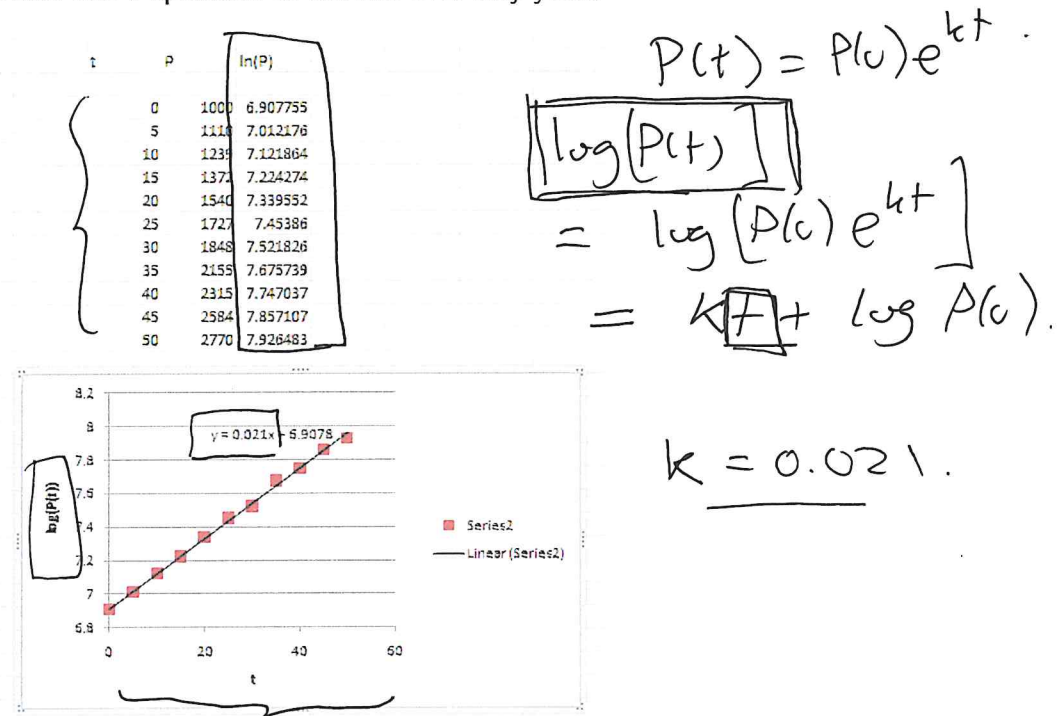 t P ln(P)
0 1000 6.907755
5 1110 7.012176
10 1239 7.121864
15 1372 7.224274
20 1540 7.339552
25 1727 7.45386
30 1848 7.521826
35 2155 7.675739
40 2315 7.747037
45 2584 7.857107
50 2770 7.926483
P(t) = P(0)e^{kt}.
log[P(t)]
= log[P(0)e^{kt}]
= kt + log P(0).
k = 0.021.
8.2
8
7.8
7.6
7.4
7.2
7
6.8
log(P(t))
y = 0.021x + 6.9078
0 20 40 60
t
Series2
Linear (Series2)